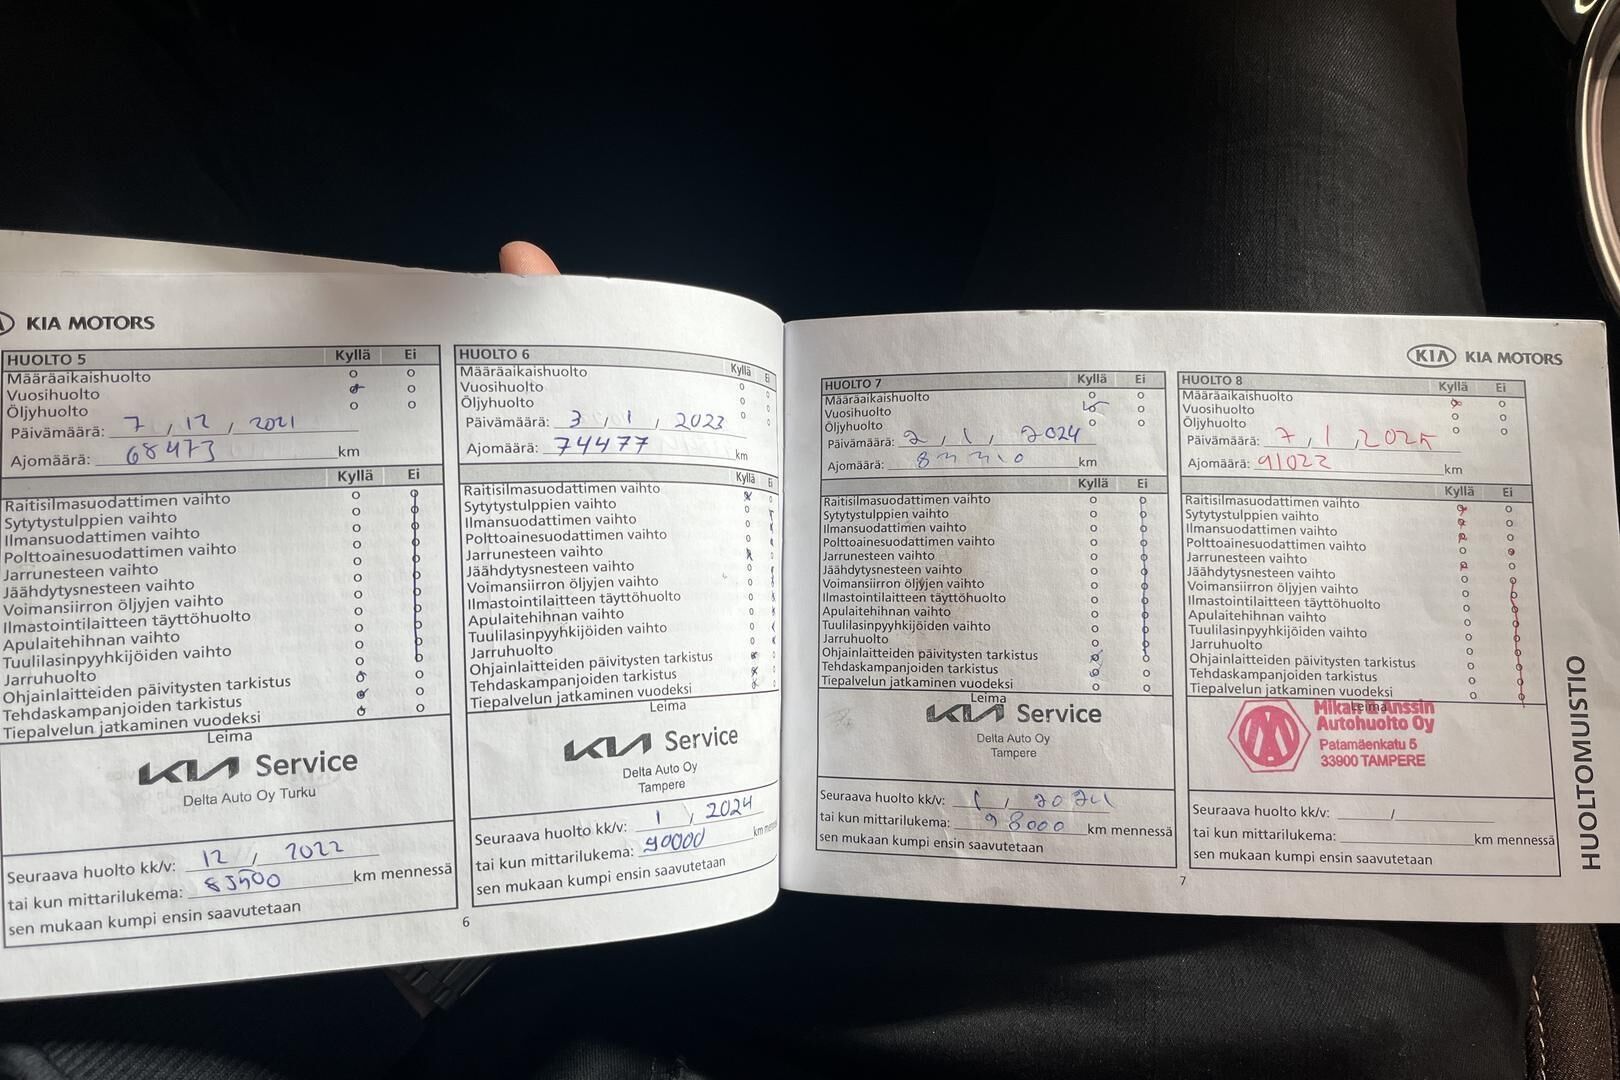 KIA MOTORS
HUOLTO 5 Kyllä Ei
Määräaikaishuolto
Vuosihuolto
Öljyhuolto
Päivämäärä: 7 , 12 , 2021
Ajomäärä: 68473 km
Kyllä Ei
Raitisilmasuodattimen vaihto
Sytytystulppien vaihto
Ilmansuodattimen vaihto
Polttoainesuodattimen vaihto
Jarrunesteen vaihto
Jäähdytysnesteen vaihto
Voimansiirron öljyjen vaihto
Ilmastointilaitteen täyttöhuolto
Apulaitehihnan vaihto
Tuulilasinpyyhkijöiden vaihto
Jarruhuolto
Ohjainlaitteiden päivitysten tarkistus
Tehdaskampanjoiden tarkistus
Tiepalvelun jatkaminen vuodeksi
Leima
KIA Service
Delta Auto Oy Turku
Seuraava huolto kk/v: 12 , 2022
tai kun mittarilukema: km mennessä
sen mukaan kumpi ensin saavutetaan
6
HUOLTO 6 Kyllä Ei
Määräaikaishuolto
Vuosihuolto
Öljyhuolto
Päivämäärä: 3 , 1 , 2023
Ajomäärä: 74477 km
Kyllä Ei
Raitisilmasuodattimen vaihto
Sytytystulppien vaihto
Ilmansuodattimen vaihto
Polttoainesuodattimen vaihto
Jarrunesteen vaihto
Jäähdytysnesteen vaihto
Voimansiirron öljyjen vaihto
Ilmastointilaitteen täyttöhuolto
Apulaitehihnan vaihto
Tuulilasinpyyhkijöiden vaihto
Jarruhuolto
Ohjainlaitteiden päivitysten tarkistus
Tehdaskampanjoiden tarkistus
Tiepalvelun jatkaminen vuodeksi
Leima
KIA Service
Delta Auto Oy
Tampere
Seuraava huolto kk/v: 1 , 2024
tai kun mittarilukema: 90000 km
sen mukaan kumpi ensin saavutetaan
KIA KIA MOTORS
HUOLTO 7 Kyllä Ei
Määräaikaishuolto
Vuosihuolto
Öljyhuolto
Päivämäärä: 2 , 1 , 2024
Ajomäärä: km
Kyllä Ei
Raitisilmasuodattimen vaihto
Sytytystulppien vaihto
Ilmansuodattimen vaihto
Polttoainesuodattimen vaihto
Jarrunesteen vaihto
Jäähdytysnesteen vaihto
Voimansiirron öljyjen vaihto
Ilmastointilaitteen täyttöhuolto
Apulaitehihnan vaihto
Tuulilasinpyyhkijöiden vaihto
Jarruhuolto
Ohjainlaitteiden päivitysten tarkistus
Tehdaskampanjoiden tarkistus
Tiepalvelun jatkaminen vuodeksi
Leima
KIA Service
Delta Auto Oy
Tampere
Seuraava huolto kk/v: 1 ,
tai kun mittarilukema: 98000 km mennessä
sen mukaan kumpi ensin saavutetaan
HUOLTO 8 Kyllä Ei
Määräaikaishuolto
Vuosihuolto
Öljyhuolto
Päivämäärä: 7 , 1 , 2025
Ajomäärä: 91022 km
Kyllä Ei
Raitisilmasuodattimen vaihto
Sytytystulppien vaihto
Ilmansuodattimen vaihto
Polttoainesuodattimen vaihto
Jarrunesteen vaihto
Jäähdytysnesteen vaihto
Voimansiirron öljyjen vaihto
Ilmastointilaitteen täyttöhuolto
Apulaitehihnan vaihto
Tuulilasinpyyhkijöiden vaihto
Jarruhuolto
Ohjainlaitteiden päivitysten tarkistus
Tehdaskampanjoiden tarkistus
Tiepalvelun jatkaminen vuodeksi
Leima
Anssin
Autohuolto Oy
Patamäenkatu 5
33900 TAMPERE
Seuraava huolto kk/v: /
tai kun mittarilukema: km mennessä
sen mukaan kumpi ensin saavutetaan
7
HUOLTOMUISTIO